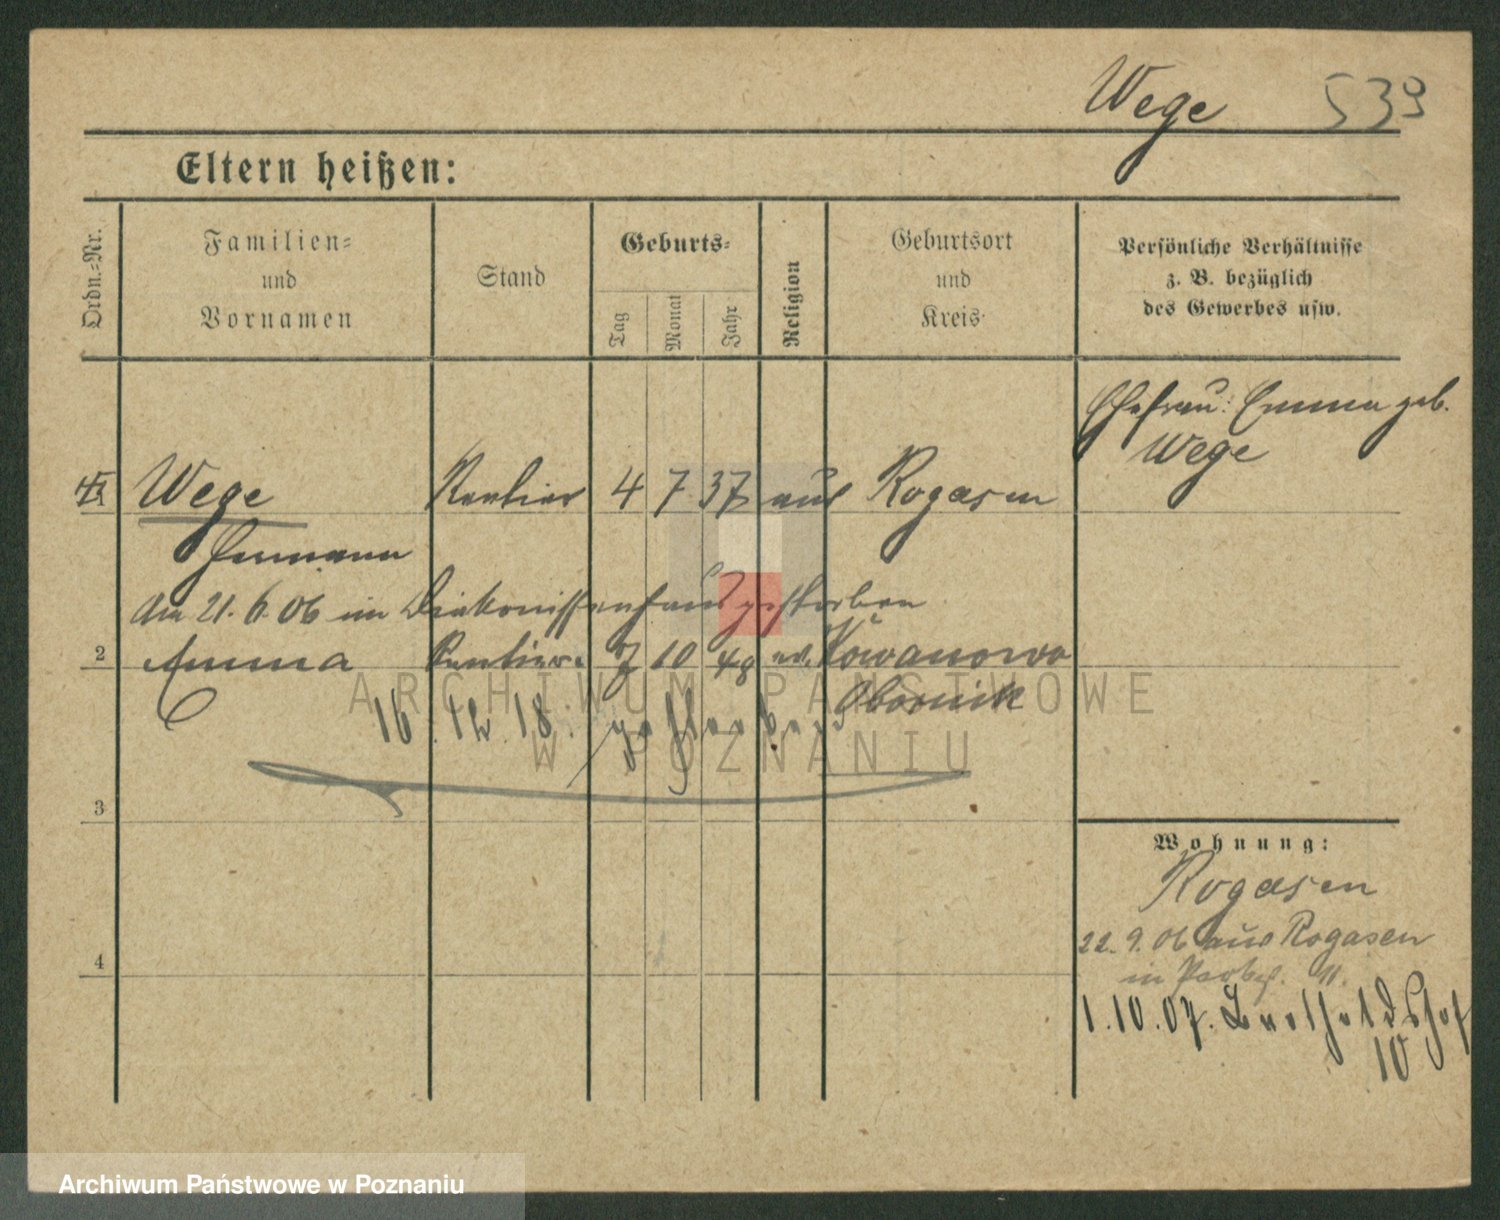 Wege 539
Eltern heißen:
Ordn.=Nr.
Familien=
und
Vornamen
Stand
Geburts=
Tag
Monat
Jahr
Religion
Geburtsort
und
Kreis
Persönliche Verhältnisse
z. B. bezüglich
des Gewerbes usw.
Ehefrau: Emma geb.
Wege
Wege Rentier 4 7 37 Rogasen
Hermann
am 21. 6. 06 im Diakonissenhaus gestorben
2 Emma Rentier. 7 10 48 ev. Kowanowo
Obornik
16. 12. 18. gestorben
3
Wohnung:
Rogasen
22. 9. 06 aus Rogasen
4
in
1. 10. 07.
10
ARCHIWUM PAŃSTWOWE
W POZNANIU
Archiwum Państwowe w Poznaniu